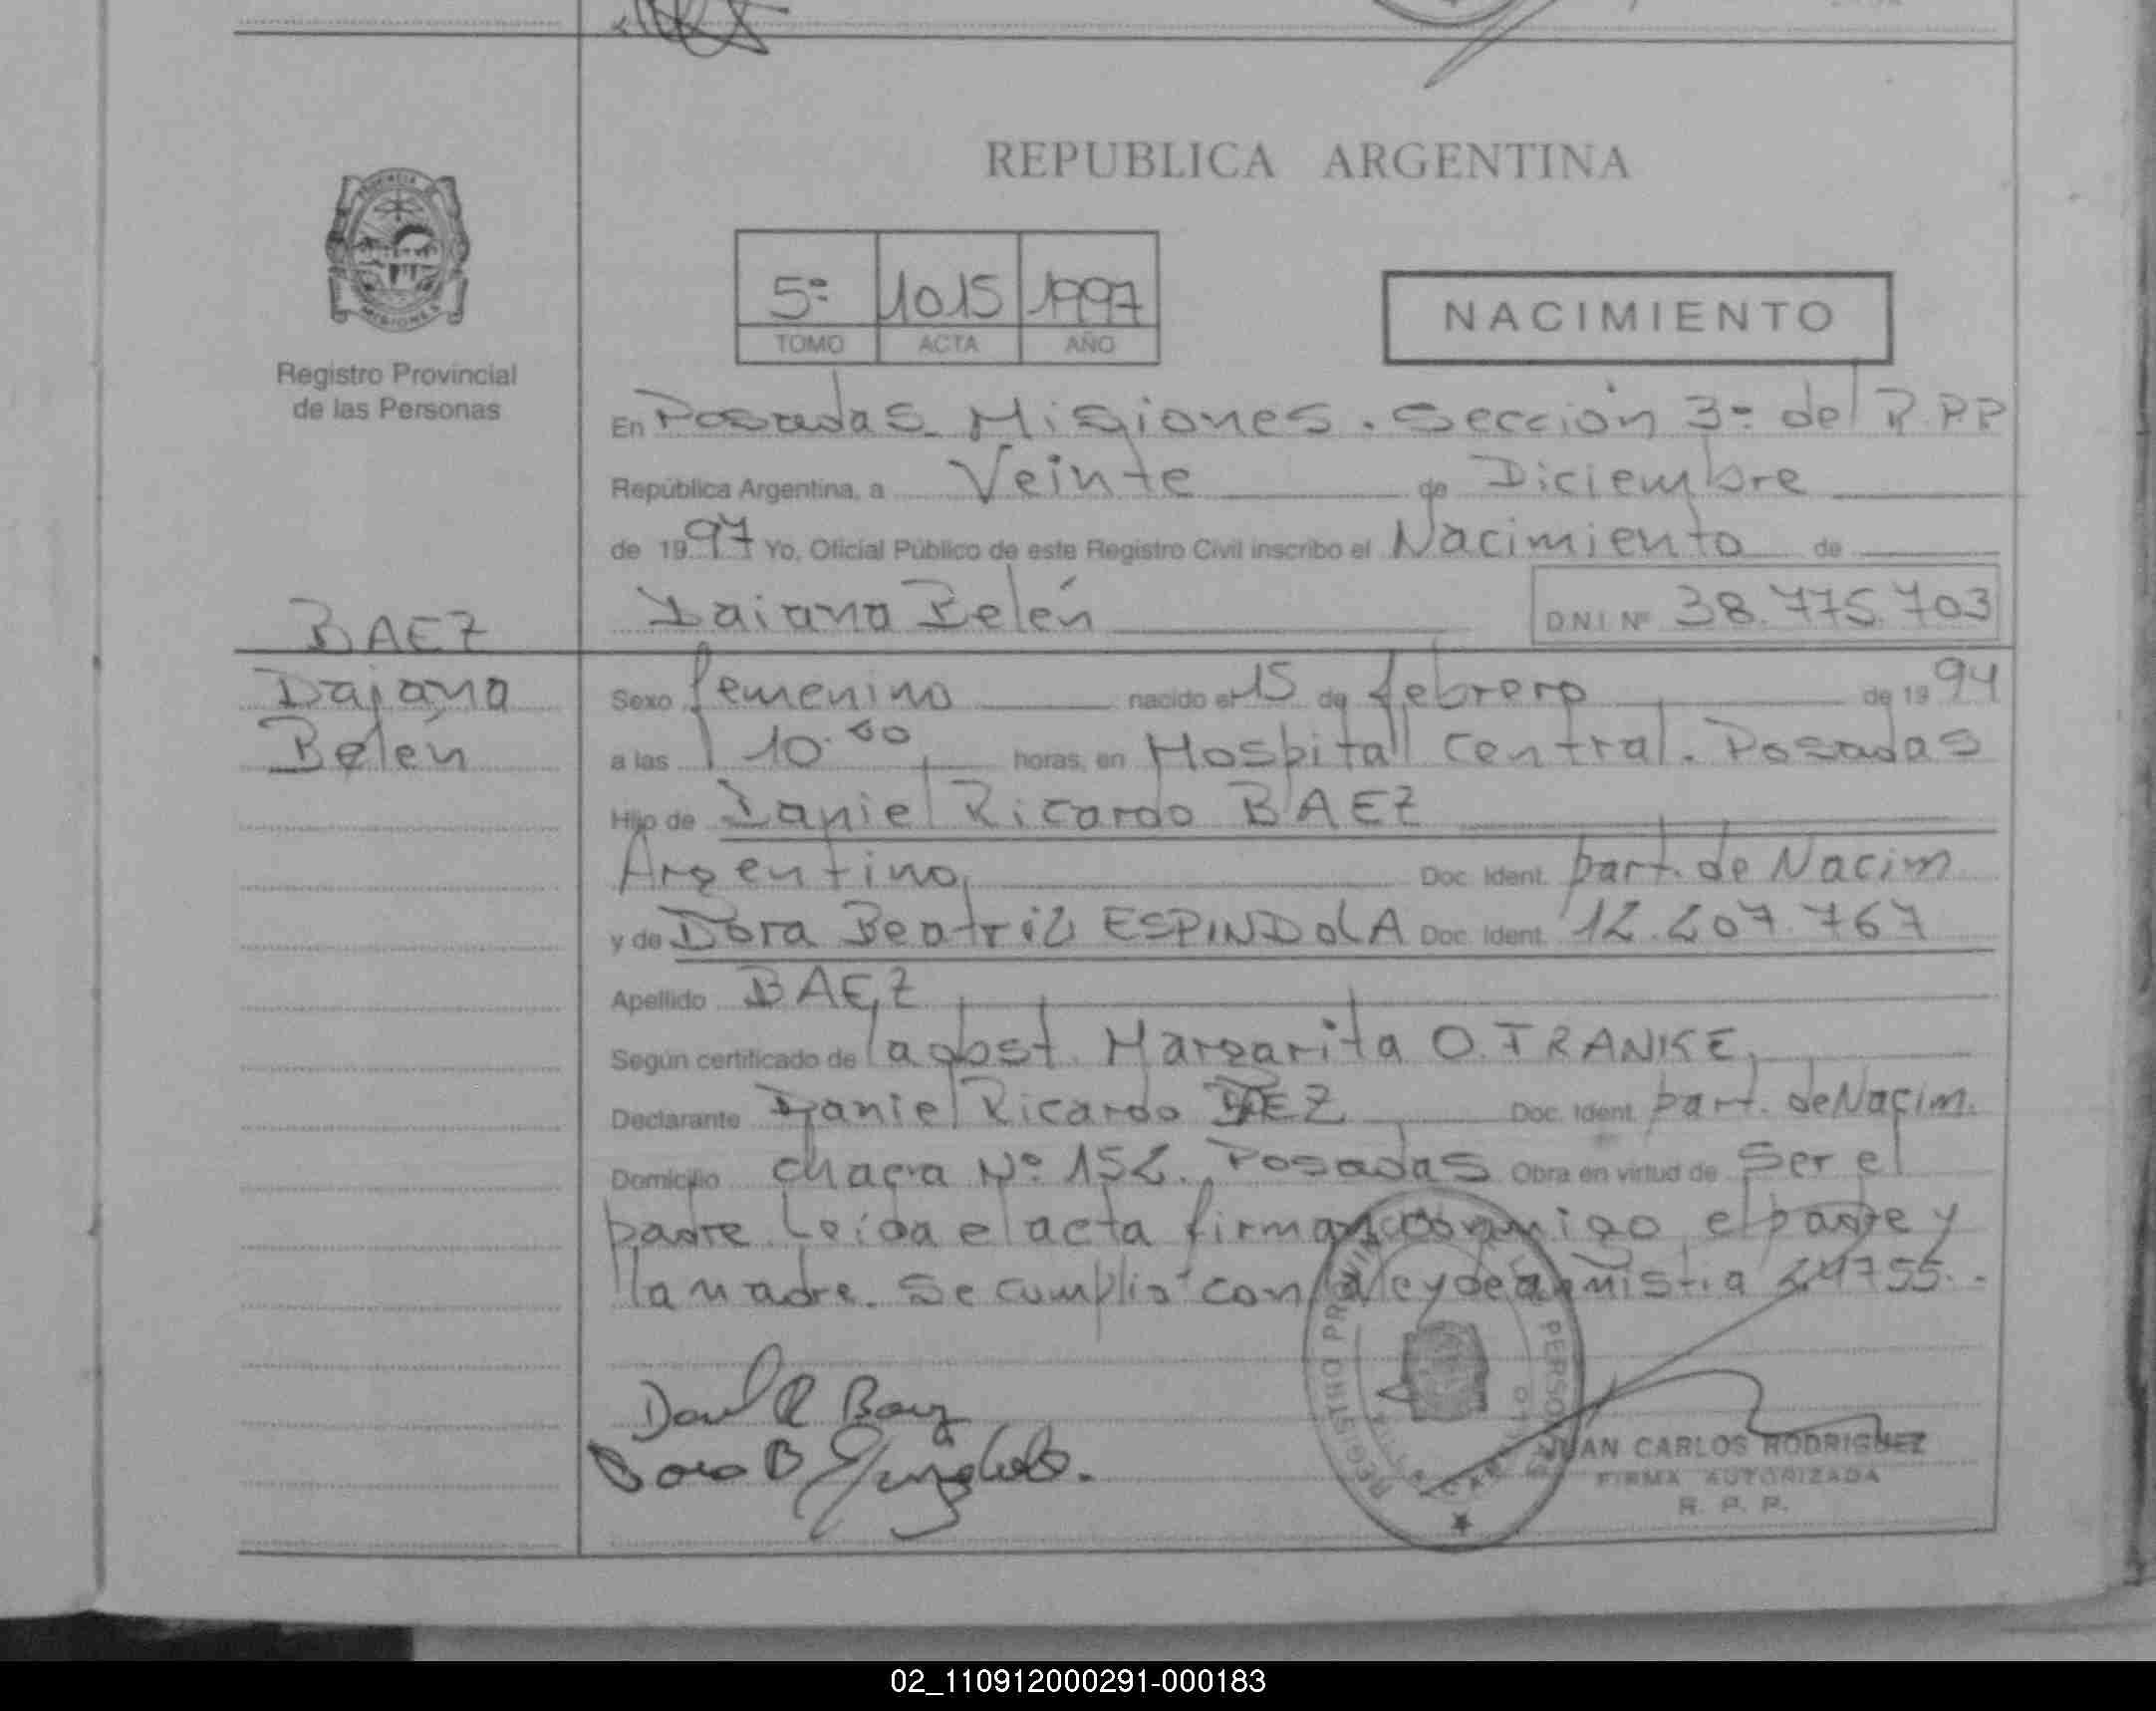 REPUBLICA ARGENTINA
5º 1015 1997
TOMO ACTA AÑO
NACIMIENTO
Registro Provincial
de las Personas
En Posadas Misiones. Sección 3º del R.P.P
República Argentina, a Veinte de Diciembre
de 1997 Yo, Oficial Público de este Registro Civil inscribo el Nacimiento de
Daiana Belén DNI Nº 38.775.703
BAEZ
Daiana
Belén
Sexo femenino nacido el 15 de febrero de 1994
a las 10.00 horas, en Hospital Central. Posadas
Hijo de Daniel Ricardo BAEZ
Argentino, Doc. Ident. part. de Nacim
y de Dora Beatriz ESPINDOLA Doc. Ident. 12.207.767
Apellido BAEZ
Según certificado de la obst. Margarita O. TRANKE,
Declarante Daniel Ricardo BAEZ Doc. Ident. part. de Nacim.
Domicilio chacra Nº 152. Posadas Obra en virtud de Ser el
padre. Leída el acta firman conmigo el padre y
la madre. Se cumplió con la ley de amnistia 24755.
Daniel R Baez
Dora B Espindola.
REGISTRO PROVINCIAL PERSONAS
JUAN CARLOS RODRIGUEZ
FIRMA AUTORIZADA
R. P. P.
02_110912000291-000183